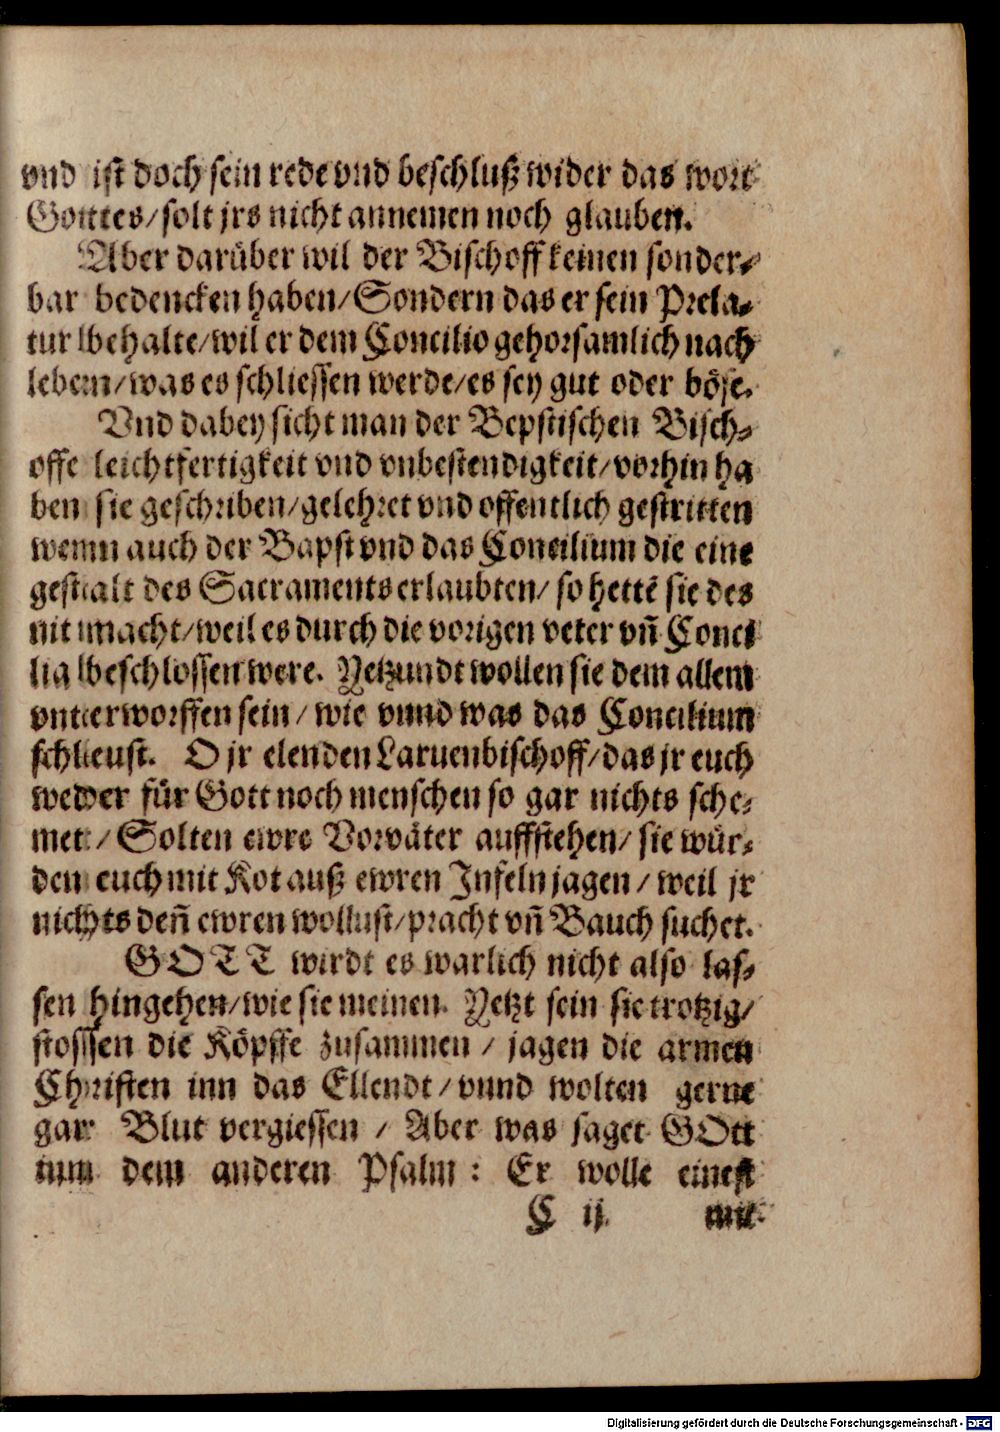 vnd ist doch sein rede vnd beschluß wider das wort
Gottes/solt jrs nicht annemen noch glauben.
Aber darüber wil der Bischoff keinen sonder⸗
bar bedencken haben/Sondern das er sein Prela⸗
tur behalte/wil er dem Concilio gehorsamlich nach
leben/was es schliessen werde/es sey gut oder böse.
Vnd dabey sicht man der Bepstischen Bisch⸗
offe leichtfertigkeit vnd vnbestendigkeit/vorhin ha
ben sie geschriben/gelehret vnd offentlich gestritten
wenn auch der Bapst vnd das Concilium die eine
gestalt des Sacraments erlaubten/ so hettē sie des
nit macht/weil es durch die vorigen veter vñ Conci
lia beschlossen were. Yetzundt wollen sie dem allem
vnterworffen sein/ wie vnnd was das Concilium
schleust. O jr elenden Laruenbischoff/das jr euch
weder für Gott noch menschen so gar nichts sche⸗
met/ Solten ewre Vorväter auffstehen/ sie wür⸗
den euch mit Kot auß ewren Infeln jagen/ weil jr
nichts deñ ewren wollust/pracht vñ Bauch suchet.
GOTT wirdt es warlich nicht also las⸗
sen hingehen/wie sie meinen. Yetzt sein sie trotzig/
stossen die Köpffe zusammen / jagen die armen
Christen inn das Ellendt/vnnd wolten gerne
gar Blut vergiessen / Aber was saget GOtt
inn dem anderen Psalm : Er wolle einest
C ij. mit
Digitalisierung gefördert durch die Deutsche Forschungsgemeinschaft - DFG